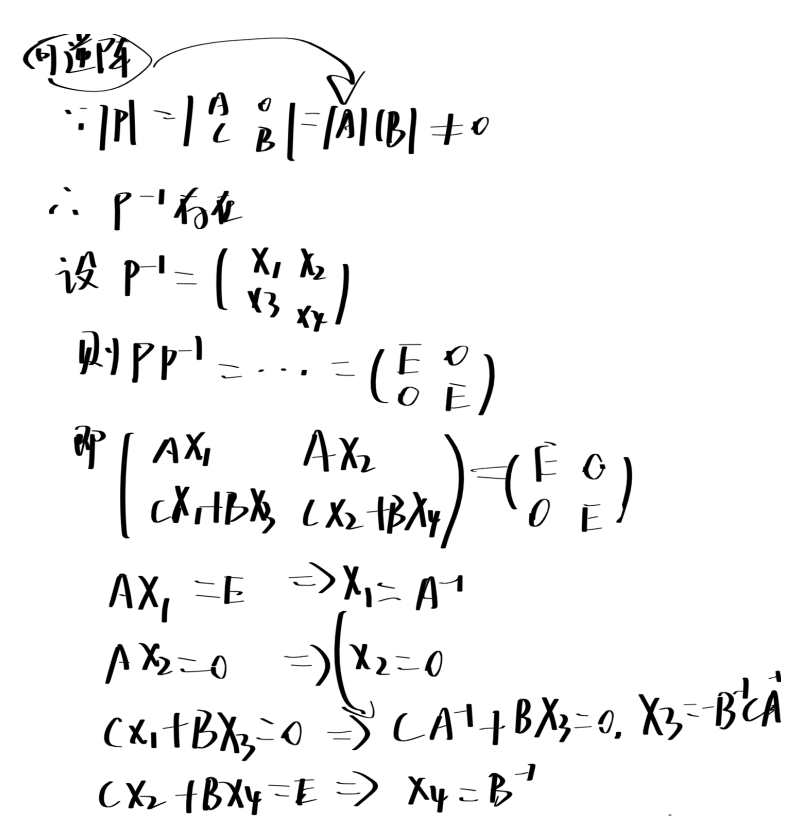 可逆阵
∵|P|=|A 0
C B|=|A||B|≠0
∴ P⁻¹存在
设 P⁻¹=(X₁ X₂
X₃ X₄)
则PP⁻¹=···=(E 0
0 E)
即(AX₁ AX₂
CX₁+BX₃ CX₂+BX₄)=(E 0
0 E)
AX₁=E ⇒X₁=A⁻¹
AX₂=0 ⇒X₂=0
CX₁+BX₃=0 ⇒ CA⁻¹+BX₃=0, X₃=-B⁻¹CA⁻¹
CX₂+BX₄=E ⇒ X₄=B⁻¹